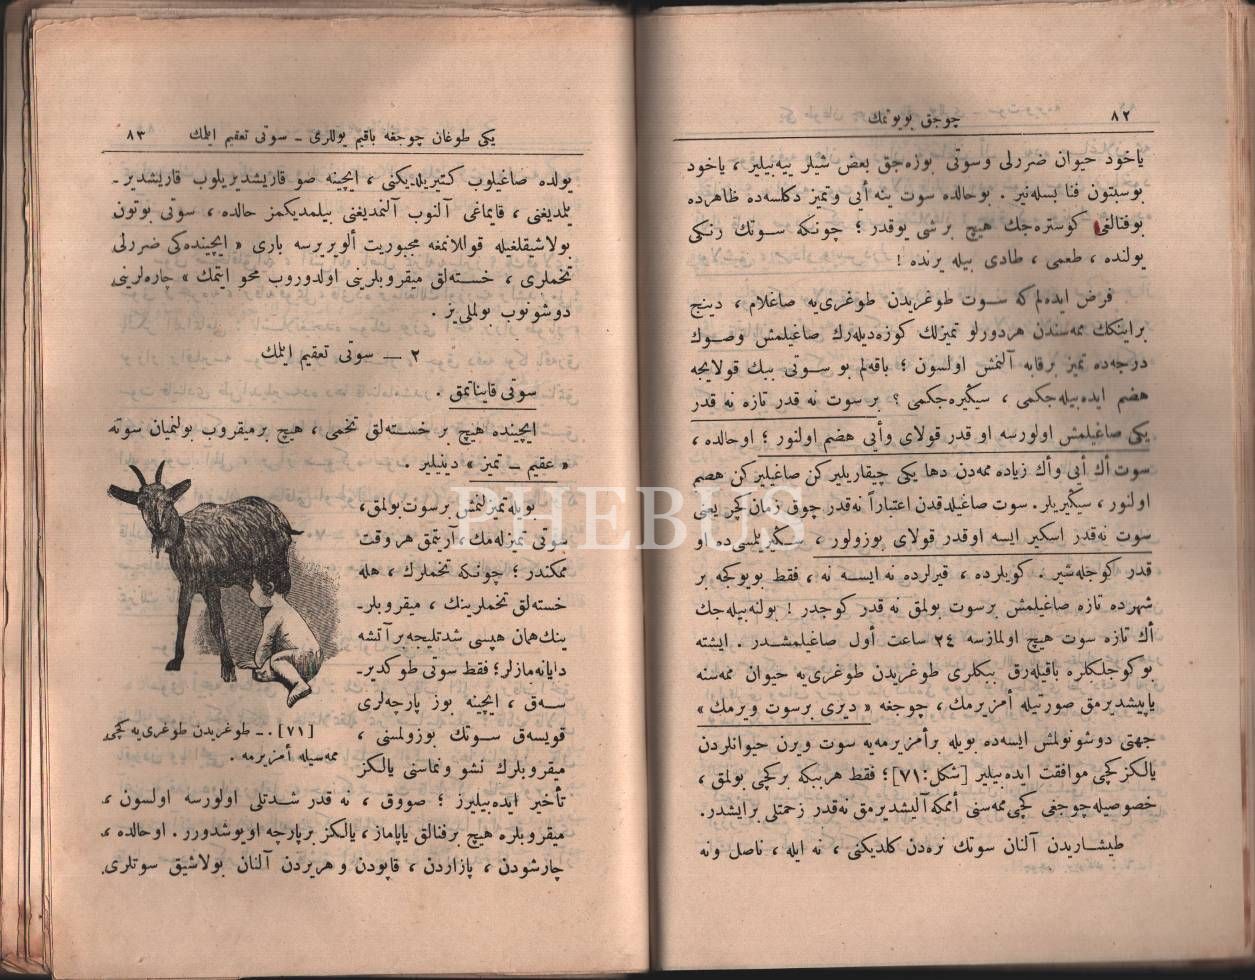 ٨٢
چوجق بويوتمك
ياخود حيوان ضررلى وسوتى بوزه‌جق بعض شيلر ييه‌بيلير ، ياخود
بوسبتون فنا بسله‌نير . بوحالده سوت ينه أيى وتميز دكلسه‌ده ظاهرده
بوفنالغى كوستره‌جك هيچ برشى يوقدر ؛ چونكه سوتك رنكى
يولنده ، طعمى ، طادى بيله يرنده !
فرض ايده‌لم كه سوت طوغريدن طوغرى‌يه صاغلام ، دينج
براينكك ممه‌سندن هردورلو تميزلك كوزه‌ديله‌رك صاغيلمش وصوك
درجه‌ده تميز برقابه آلنمش اولسون ؛ باقه‌لم بو سوتى ببك قولايجه
هضم ايده‌بيله‌جكمى ، سيكيره‌جكمى ؟ بر سوت نه قدر تازه نه قدر
يكى صاغيلمش اولورسه او قدر قولاى وأيى هضم اولنور ؛ اوحالده ،
سوت أك أيى وأك زياده ممه‌دن دها يكى چيقاريليركن صاغيليركن هضم
اولنور ، سيكيريلر . سوت صاغيلدقدن اعتباراً نه‌قدر چوق زمان كچر يعنى
سوت نه‌قدر اسكير ايسه اوقدر قولاى بوزولور ، سكيريلسى‌ده او
قدر كوجله‌شير . كويلرده ، قيرلرده نه ايسه نه ، فقط بويوكجه بر
شهرده تازه صاغيلمش برسوت بولمق نه قدر كوجدر ! بولنه‌بيله‌جك
أك تازه سوت هيچ اولمازسه ٢٤ ساعت أول صاغيلمشدر . ايشته
بوكوجلكلره باقيله‌رق ببكلرى طوغريدن طوغرى‌يه حيوان ممه‌سنه
ياپيشديرمق صورتيله أمزيرمك ، چوجغه « ديرى برسوت ويرمك »
جهتى دوشونولمش ايسه‌ده بويله برأمزيرمه‌يه سوت ويرن حيوانلردن
يالكز كچى موافقت ايده‌بيلير [شكل:٧١] ؛ فقط هرببكه بركچى بولمق ،
خصوصيله چوجغى كچى ممه‌سنى أممكه آليشديرمق نه‌قدر زحمتلى برايشدر.
طيشاريدن آلنان سوتك نره‌دن كلديكنى ، نه ايله ، ناصل ونه
يكى طوغان چوجغه باقيم يوللرى ـ سوتى تعقيم ايتمك
٨٣
يولده صاغيلوب كتيريلديكنى ، ايچينه صو قاريشديريلوب قاريشديرـ
يلمديغنى ، قايماغى آلنوب آلنمديغنى بيلمديكمز حالده ، سوتى بوتون
بولاشيقلغيله قوللانمغه مجبوريت ألويررسه بارى « ايچينده‌كى ضررلى
تخملرى ، خسته‌لق ميقروبلرينى اولدوروب محو ايتمك » چاره‌لرينى
دوشونوب بولملى‌يز .
٢ ـ سوتى تعقيم ايتمك
سوتى قايناتمق .
ايچينده هيچ بر خسته‌لق تخمى ، هيچ برميقروب بولنميان سوته
« عقيم ـ تميز » دينيلير .
بويله تميزلنمش برسوت بولمق،
سوتى تميزله‌مك، آريتمق هروقت
ممكندر ؛ چونكه تخملرك ، هله
خسته‌لق تخملرينك ، ميقروبلرـ
ينك همان هپسى شدتليجه برآتشه
دايانه‌مازلر؛ فقط سوتى طوكديرـ
سه‌ق ، ايچينه بوز پارچه‌لرى
قويسه‌ق سوتك بوزولمسنى ،
ميقروبلرك نشو ونماسنى يالكز
تأخير ايده‌بيليرز ؛ صووق ، نه قدر شدتلى اولورسه اولسون ،
ميقروبلره هيچ برفنالق ياپاماز ، يالكز برپارچه اويوشدورر . اوحالده ،
چارشودن ، پازاردن ، قاپودن و هريردن آلنان بولاشيق سوتلرى
[٧١] .ـ طوغريدن طوغرى‌يه كچى
ممه‌سيله أمزيرمه .
PHEBUS